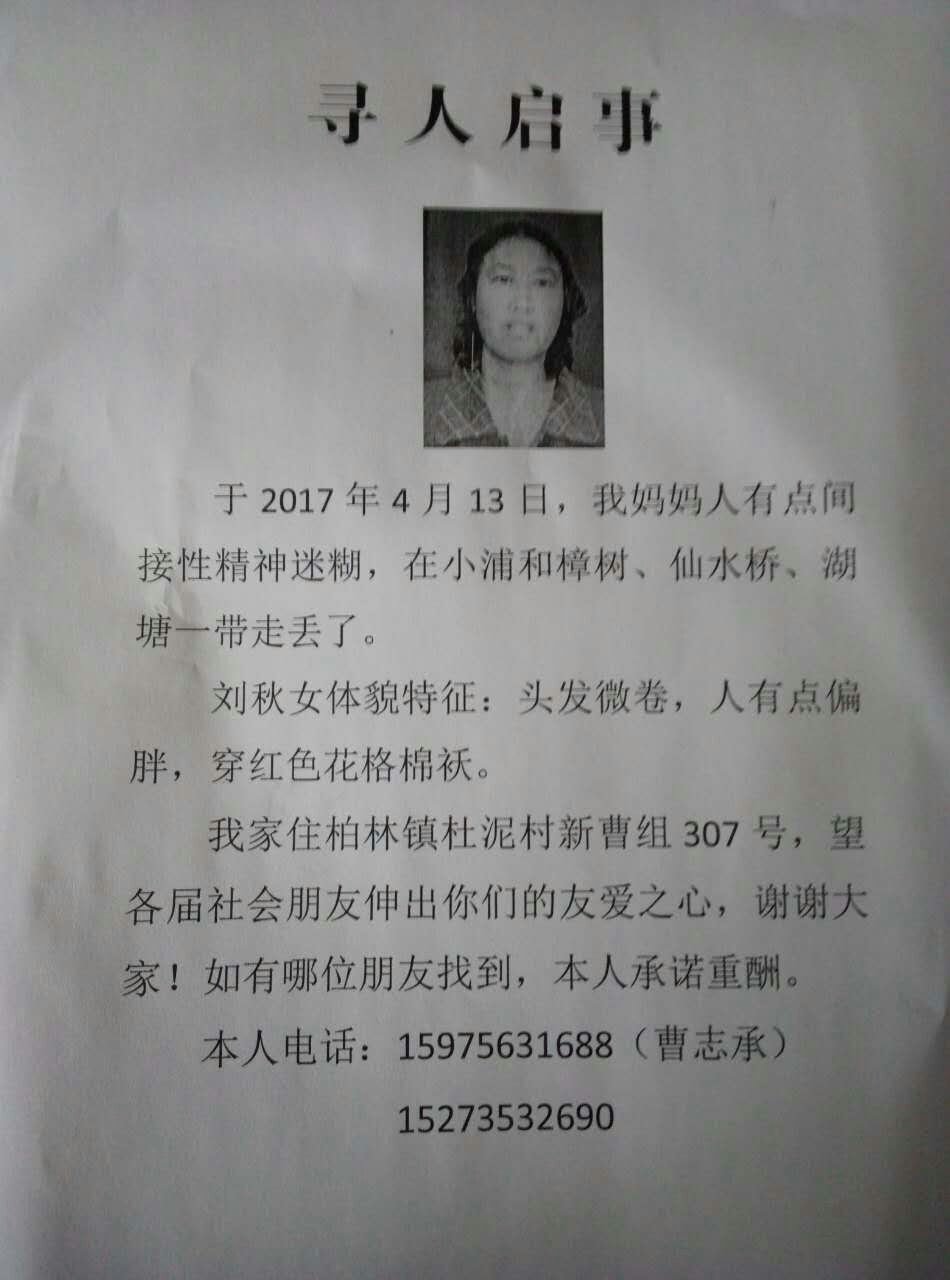 寻人启事
于 2017 年 4 月 13 日，我妈妈人有点间
接性精神迷糊，在小浦和樟树、仙水桥、湖
塘一带走丢了。
刘秋女体貌特征：头发微卷，人有点偏
胖，穿红色花格棉袄。
我家住柏林镇杜泥村新曹组 307 号，望
各届社会朋友伸出你们的友爱之心，谢谢大
家！如有哪位朋友找到，本人承诺重酬。
本人电话：15975631688（曹志承）
15273532690